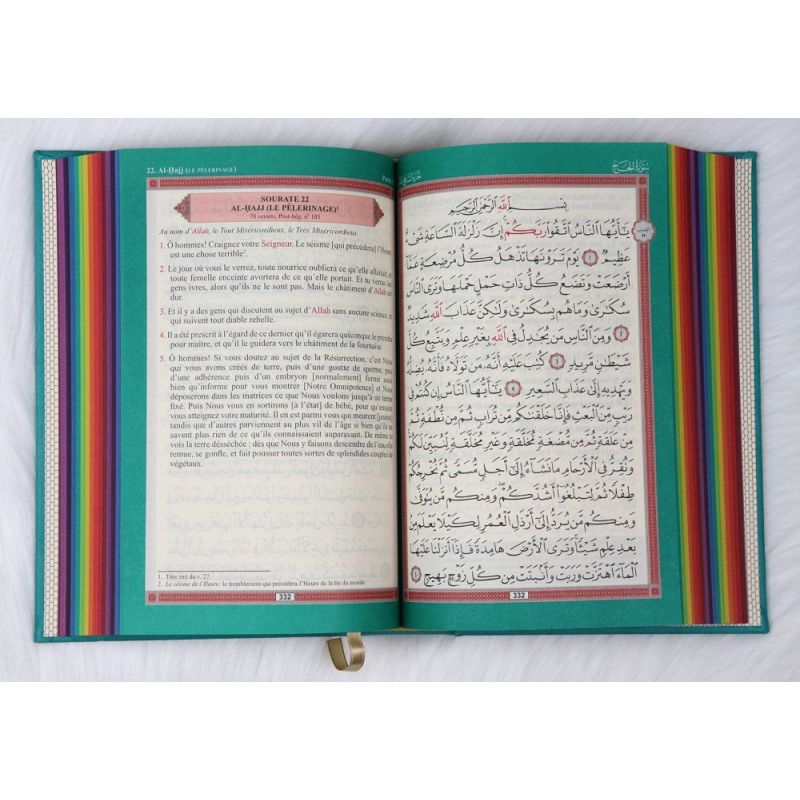 22. Al-Ḥajj (LE PÈLERINAGE)
SOURATE 22
AL-ḤAJJ (LE PÈLERINAGE)¹
78 versets, Post-hég. n° 103
Au nom d'Allah, le Tout Miséricordieux, le Très Miséricordieux.
1. Ô hommes! Craignez votre Seigneur. Le séisme [qui précédera] l'Heure
est une chose terrible².
2. Le jour où vous le verrez, toute nourrice oubliera ce qu'elle allaitait, et
toute femelle enceinte avortera de ce qu'elle portait. Et tu verras les
gens ivres, alors qu'ils ne le sont pas. Mais le châtiment d'Allah est
dur.
3. Et il y a des gens qui discutent au sujet d'Allah sans aucune science, et
qui suivent tout diable rebelle.
4. Il a été prescrit à l'égard de ce dernier qu'il égarera quiconque le prendra
pour maître, et qu'il le guidera vers le châtiment de la fournaise.
5. Ô hommes! Si vous doutez au sujet de la Résurrection, c'est Nous
qui vous avons créés de terre, puis d'une goutte de sperme, puis
d'une adhérence puis d'un embryon [normalement] formé aussi
bien qu'informe pour vous montrer [Notre Omnipotence] et Nous
déposerons dans les matrices ce que Nous voulons jusqu'à un terme
fixé. Puis Nous vous en sortirons [à l'état] de bébé, pour qu'ensuite
vous atteignez votre maturité. Il en est parmi vous qui meurent [jeunes]
tandis que d'autres parviennent au plus vil de l'âge si bien qu'ils ne
savent plus rien de ce qu'ils connaissaient auparavant. De même tu
vois la terre désséchée : dès que Nous y faisons descendre de l'eau elle
remue, se gonfle, et fait pousser toutes sortes de splendides couples de
végétaux.
1. Titre tiré du v. 27.
2. Le séisme de l'Heure: le tremblement qui précédera l'Heure de la fin du monde.
332
سورة الحج
بِسْمِ اللَّهِ الرَّحْمَٰنِ الرَّحِيمِ
يَٰٓأَيُّهَا ٱلنَّاسُ ٱتَّقُوا۟ رَبَّكُمْ ۚ إِنَّ زَلْزَلَةَ ٱلسَّاعَةِ شَىْءٌ
عَظِيمٌ ١ يَوْمَ تَرَوْنَهَا تَذْهَلُ كُلُّ مُرْضِعَةٍ عَمَّآ
أَرْضَعَتْ وَتَضَعُ كُلُّ ذَاتِ حَمْلٍ حَمْلَهَا وَتَرَى ٱلنَّاسَ
سُكَٰرَىٰ وَمَا هُم بِسُكَٰرَىٰ وَلَٰكِنَّ عَذَابَ ٱللَّهِ شَدِيدٌ
٢ وَمِنَ ٱلنَّاسِ مَن يُجَٰدِلُ فِى ٱللَّهِ بِغَيْرِ عِلْمٍ وَيَتَّبِعُ كُلَّ
شَيْطَٰنٍ مَّرِيدٍ ٣ كُتِبَ عَلَيْهِ أَنَّهُۥ مَن تَوَلَّاهُ فَأَنَّهُۥ يُضِلُّهُۥ
وَيَهْدِيهِ إِلَىٰ عَذَابِ ٱلسَّعِيرِ ٤ يَٰٓأَيُّهَا ٱلنَّاسُ إِن كُنتُمْ فِى
رَيْبٍ مِّنَ ٱلْبَعْثِ فَإِنَّا خَلَقْنَٰكُم مِّن تُرَابٍ ثُمَّ مِن نُّطْفَةٍ ثُمَّ
مِنْ عَلَقَةٍ ثُمَّ مِن مُّضْغَةٍ مُّخَلَّقَةٍ وَغَيْرِ مُخَلَّقَةٍ لِّنُبَيِّنَ لَكُمْ ۚ
وَنُقِرُّ فِى ٱلْأَرْحَامِ مَا نَشَآءُ إِلَىٰٓ أَجَلٍ مُّسَمًّى ثُمَّ نُخْرِجُكُمْ
طِفْلًا ثُمَّ لِتَبْلُغُوٓا۟ أَشُدَّكُمْ ۖ وَمِنكُم مَّن يُتَوَفَّىٰ
وَمِنكُم مَّن يُرَدُّ إِلَىٰٓ أَرْذَلِ ٱلْعُمُرِ لِكَيْلَا يَعْلَمَ مِنۢ
بَعْدِ عِلْمٍ شَيْـًٔا ۚ وَتَرَى ٱلْأَرْضَ هَامِدَةً فَإِذَآ أَنزَلْنَا عَلَيْهَا
ٱلْمَآءَ ٱهْتَزَّتْ وَرَبَتْ وَأَنۢبَتَتْ مِن كُلِّ زَوْجٍۭ بَهِيجٍ ٥
332